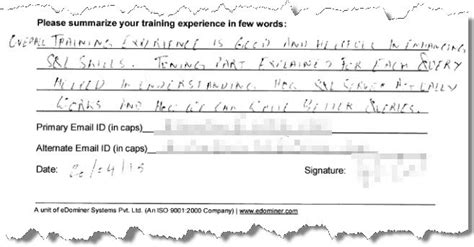 Please summarize your training experience in few words:
OVERALL TRAINING EXPERIENCE IS GOOD AND HELPFUL IN ENHANCING
SQL SKILLS. TUNING PART EXPLAINED FOR EACH QUERY
HELPED IN UNDERSTANDING HOW SQL SERVER ACTUALLY
WORKS AND HOW WE CAN WRITE BETTER QUERIES.
Primary Email ID (in caps)
Alternate Email ID (in caps)
Date: /04/15 Signature:
A unit of eDominer Systems Pvt. Ltd. (An ISO 9001:2000 Company) | www.edominer.com